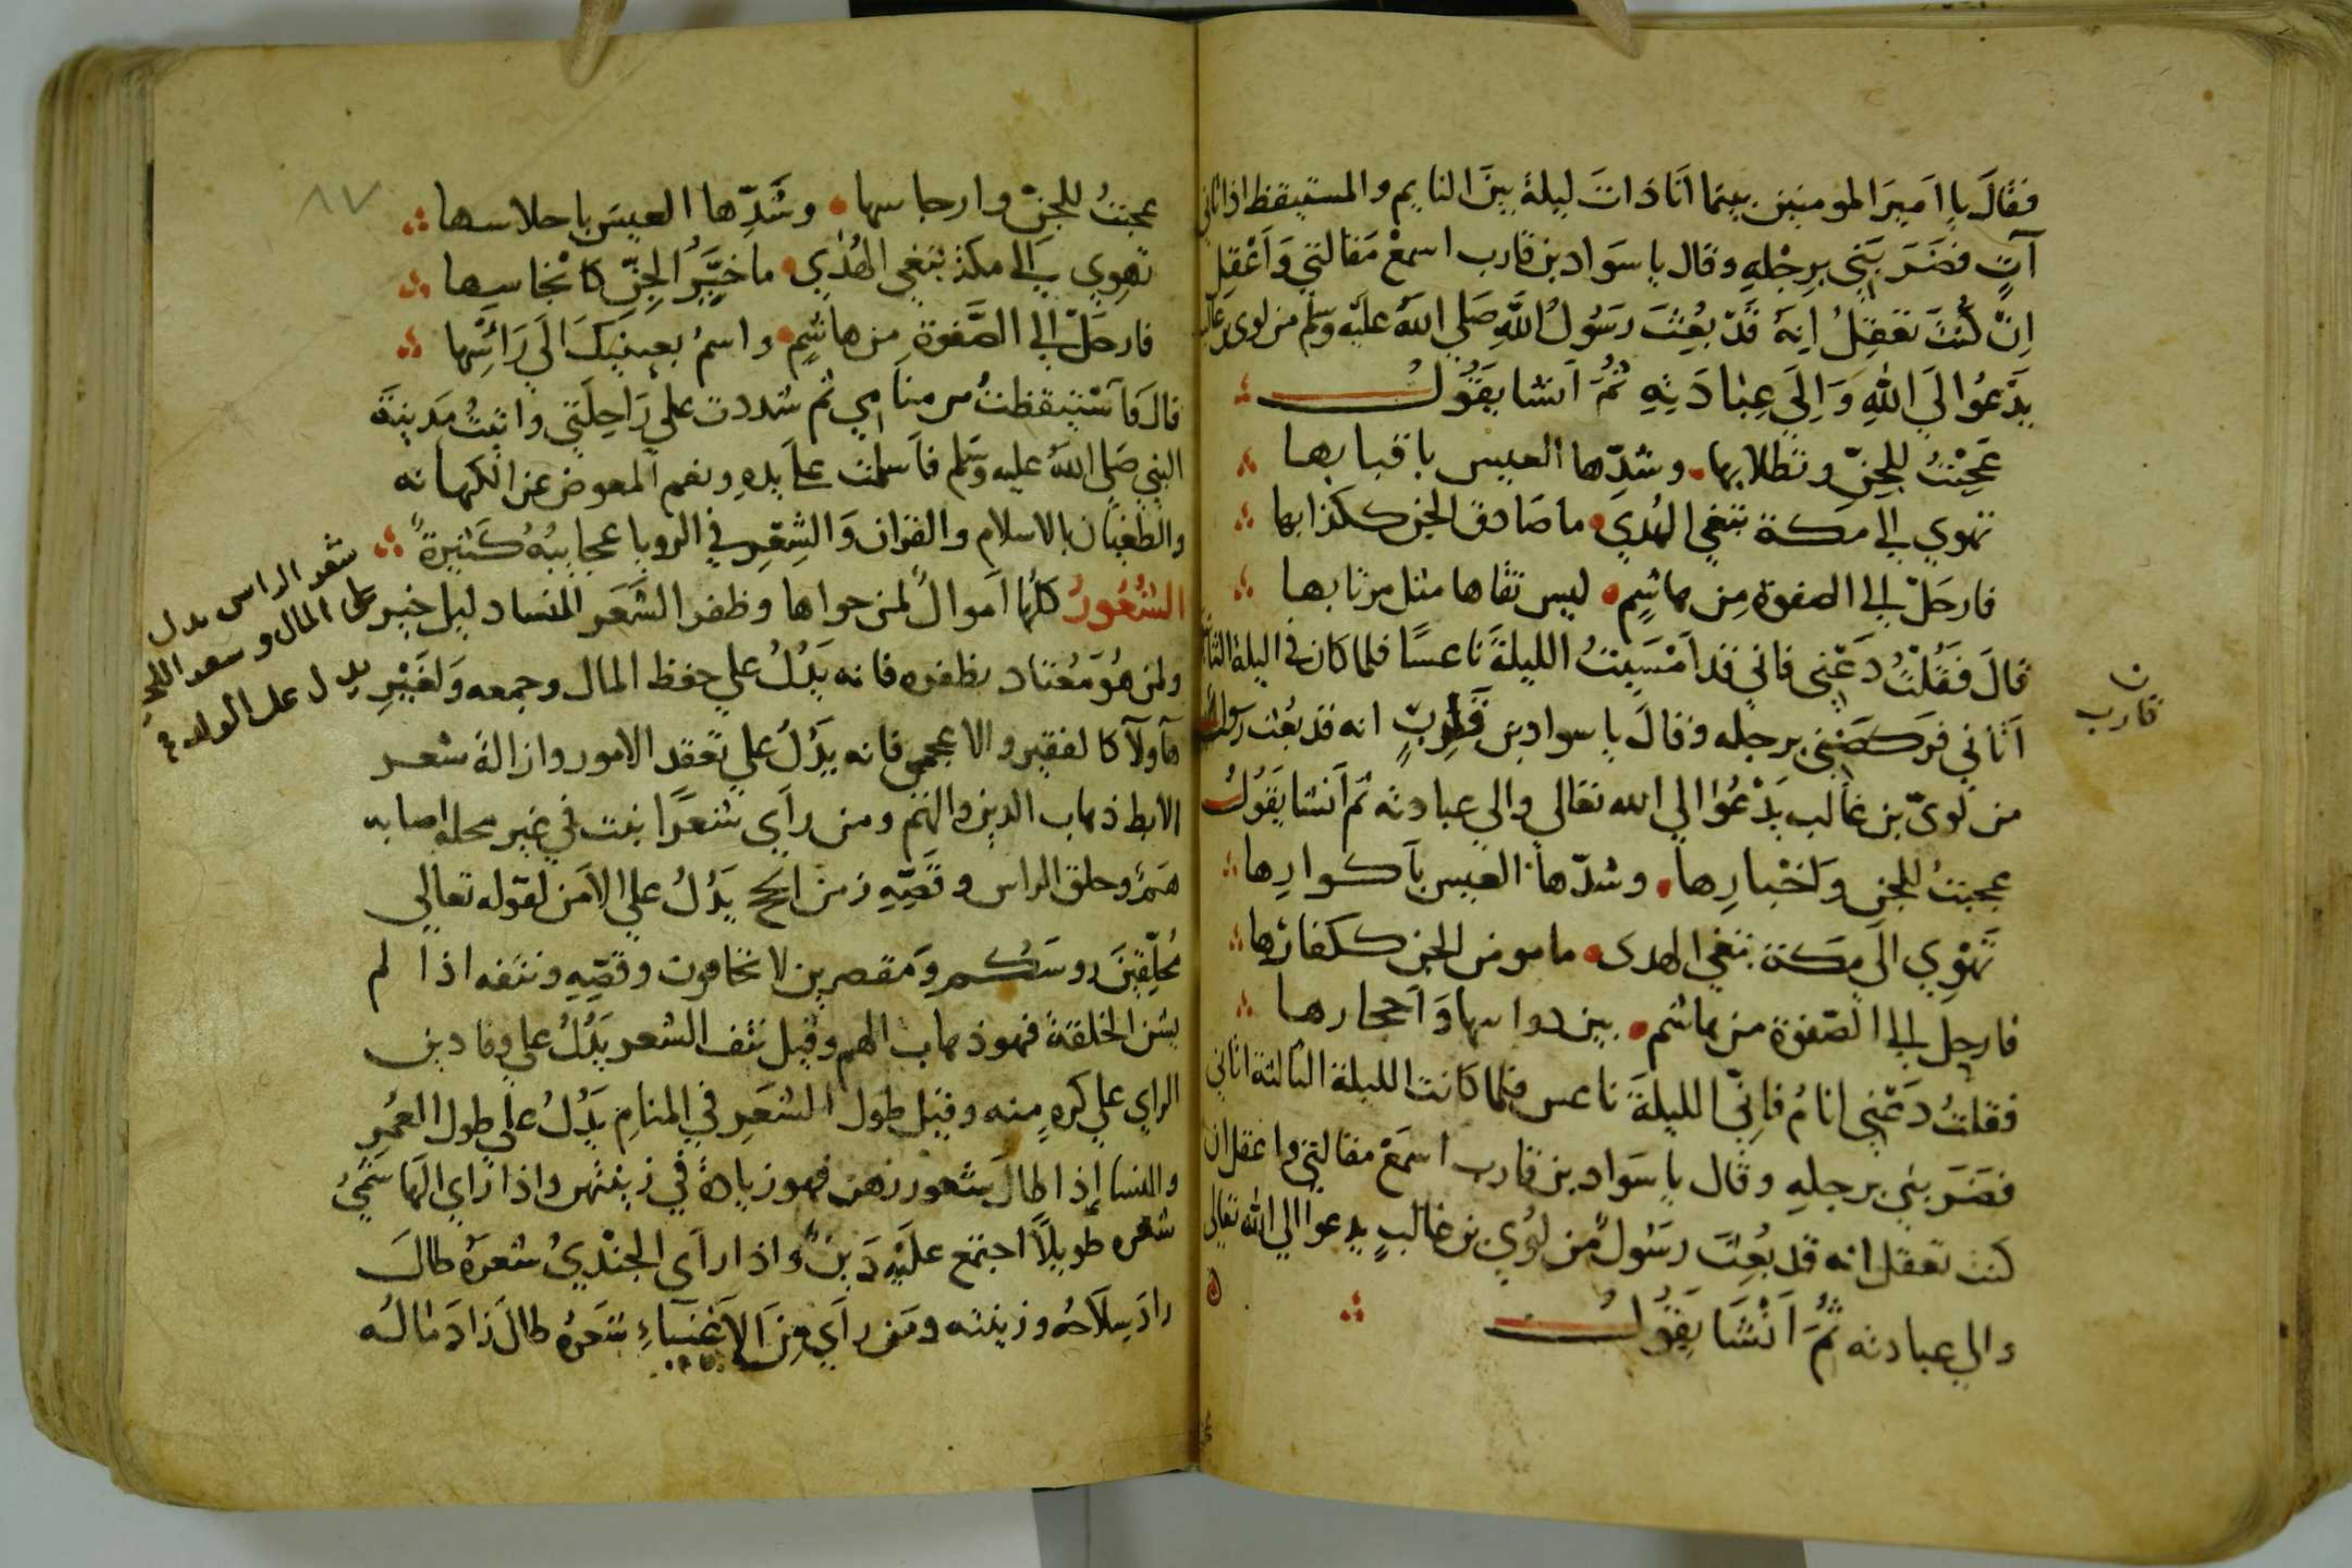 فقَالَ يا اَميرَ المومنين بينما اَنَا ذاتَ ليلةٍ بينَ النايم والمستيقظ اذ اتاني
آتٍ فضَرَبَني بِرِجْلِهِ وقال يا سَوَاد بن قَارب اسمعْ مَقالتي وَاعْقِل
اِنْ كُنْتَ تَعْقِلُ اِنهُ قَدْ بُعِثَ رسُولُ اللّهِ صَلي اللهُ عليه وسلم من لوي بن غالب
يَدْعُوا اِلَي اللهِ وَاِلَي عِبَادَتِهِ ثُمَّ اَنشا يَقُولُ
عَجِبْتُ للجِنّ وتطلابها • وشدِّها العيس باقتابها
تهوي الي مكة تبغي الهُدي • ما صَادق الجن ككذابها
فارحَلْ الي الصفوة مِن هاشِم • ليس قدَاماها مثل من اذنابها
قالَ فَقُلْتُ دَعْني فاني قد اَمْسَيتُ الليلةَ نَاعسًا فلما كان في الليلة الثانية
اَتاني فرَكضَني برجله وقالَ يا سواد بن قَارِبٍ انه قد بعث رسول
ن
قارب
من لويّ بن غالب يَدْعُوا الي الله تعالي والي عبادته ثم اَنشا يَقُولُ
عجبتُ للجن وَاخْبارِها • وشدّها العيس باَكوارِها
تَهْوِي الَي مكة تبغي الهدى • ما مومن الجن ككفارها
فارحل الي الصّفوة من هاشم • بين روابيها وَاَحجارها
فقلتُ دَعْني انامُ فاِنّي الليلةَ ناعس فلما كانت الليلة الثالثة اتاني
فضَرَبني برجلِهِ وقال يا سَواد بن قارب اسمَعْ مقالتي واعقل ان
كنت تعقل انه قد بُعِثَ رسُولٌ من لُوي بن غالبٍ يدعوا الي الله تعالي
والي عبادته ثُمَّ اَنْشَا يَقُولُ
٨٧
عجبتُ للجنّ وارجاسها • وشَدِّها العيسَ باحلاسها
تهوِي اِلَي مكة تبغي الهُدَي • ما خَيِّرُ الجِنِّ كاَنجاسِها
فارحَلْ الي الصَّفوةِ من هاشِم • واسمُ بعينَيكَ اِلَي رَاْسِها
قالَ فاَسْتَيقظتُ من منامي ثم شددت علي رَاحِلَتي واتيتُ مَدينَةَ
النبي صَلي اللهُ عليه وسَلم فاَسلمت علي يدهِ ونعم المعوض عن الكهانه
والطغيان بالاسلام والقران وَالشِعْرِ في الرويا عجايبُهُ كَثيرةٌ
الشُعُورُ كلُّها اَموالٌ لمن حواها وظفر الشَعَر للنسا دليل خير
ولمن هُوَ مُعْتَاد بظفره فانه يَدُلُ علي حفظ المال وجمعه وَلغَيْرِ
شعر الراس يدل
على المال وشعر اللحية
يدل على الولد
هاولاَ كالفقير والاعجمي فانه يَدُلُ علي تعقد الامور وازالة شعر
الابط ذهاب الدين والهم ومن رأَى شَعَرًا ينبت في غير محله اصابه
هَمٌ وحلق الراس وقَصِّهِ زمن الحج يَدُلُ علي الاَمن لقوله تعالي
مُحلِّقينَ روسَكُم وَمقصرين لا تخافون وقصِّهِ ونتفه اذا لم
يشن الخلقةَ فهو ذهاب الهم وقيل نتف الشعر يَدُلُ علي وفا دين
الراي علي كرهٍ منه وقيل طول الشعَرِ في المنامِ يَدُلُ علي طول العُمْرِ
والنسا إذا طالَ شعورهن فهو زيادةٌ في زينتهن واذا رَاي الهاشميُ
شعره طويلاً اجتمع علَيْهِ دَينٌ واذا رأى الجنْديُ شعرَهُ طالَ
زادَ سِلاَحهُ وزينته ومَن رأَي مِنَ الاَغنياءِ شَعرَهُ طالَ زادَ مَالُه